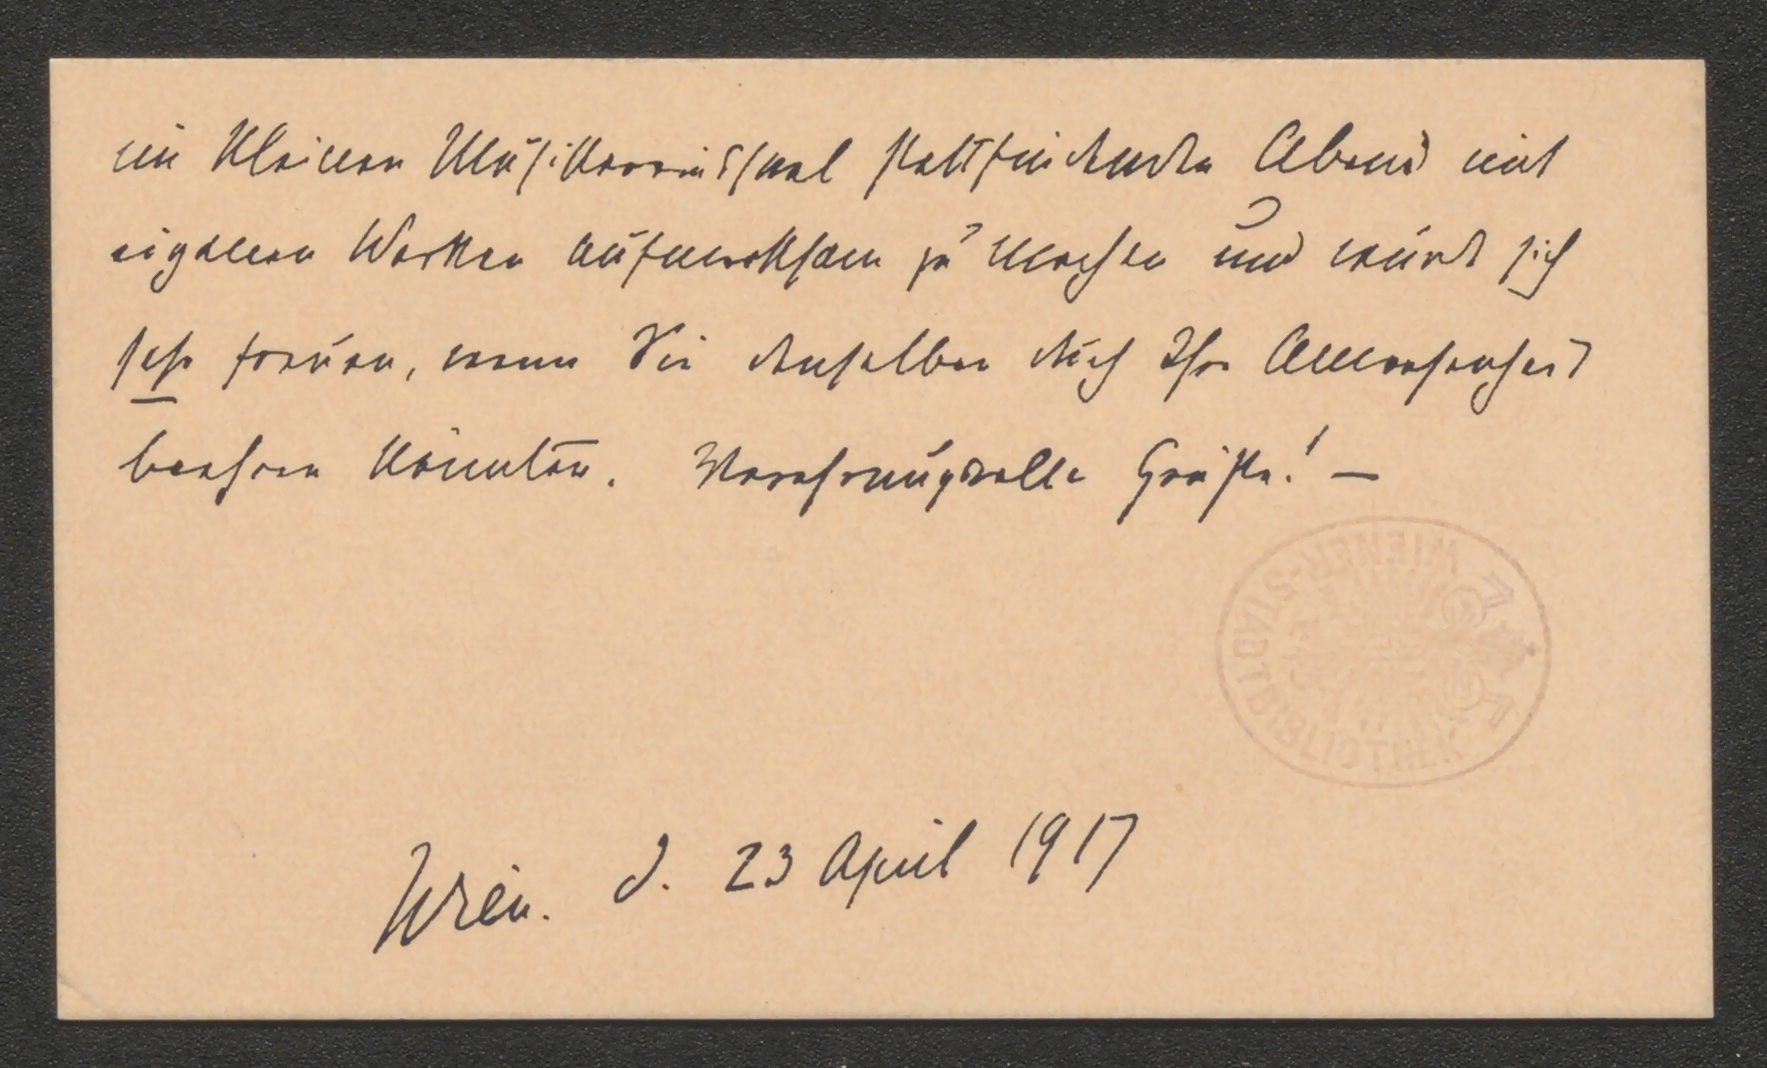 im kleinen Musikvereinssaal stattfindenden Abend mit
eigenen Werken aufmerksam zu machen und würde sich
sehr freuen, wenn Sie denselben durch Ihre Anwesenheit
beehren könnten. Verehrungsvolle Grüße! —
WIENER-STADTBIBLIOTHEK
Wien. d. 23 April 1917